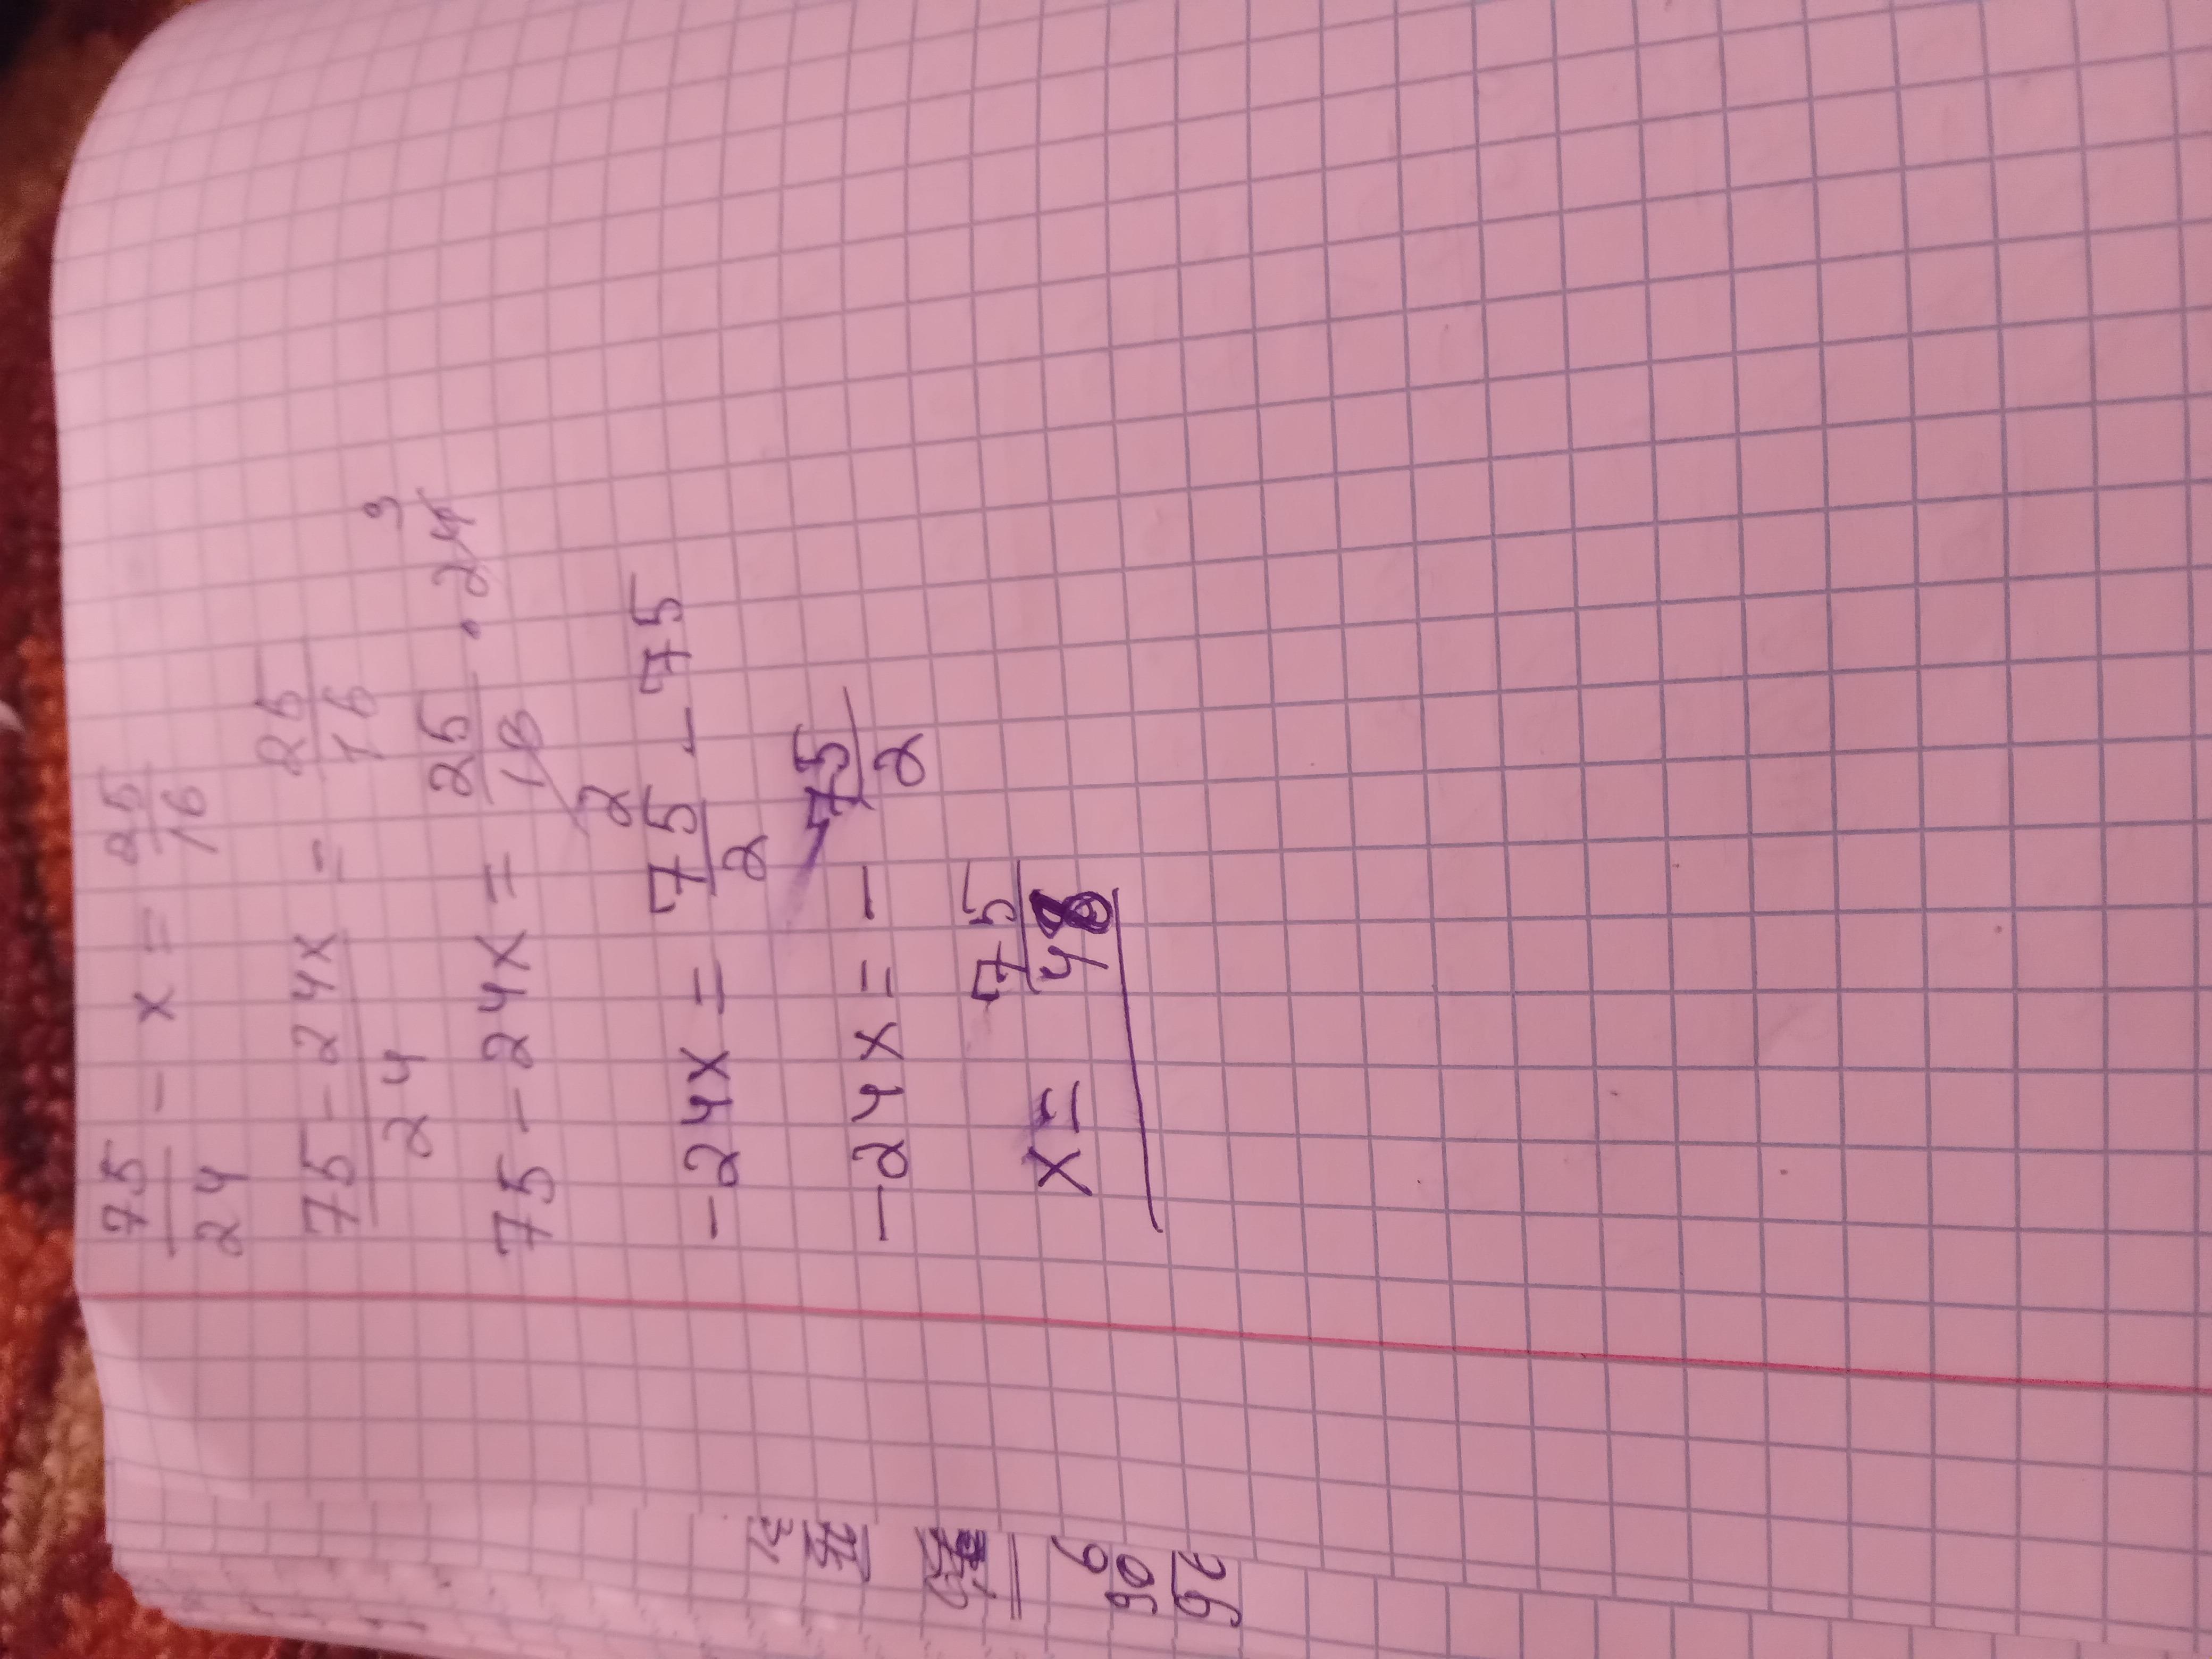 75/24 - x = 25/16
(75 - 24x)/24 = 25/16
75 - 24x = 25/16 · 24 3
2
-24x = 75/2 - 75
-24x = - 75/2
x = 75/48